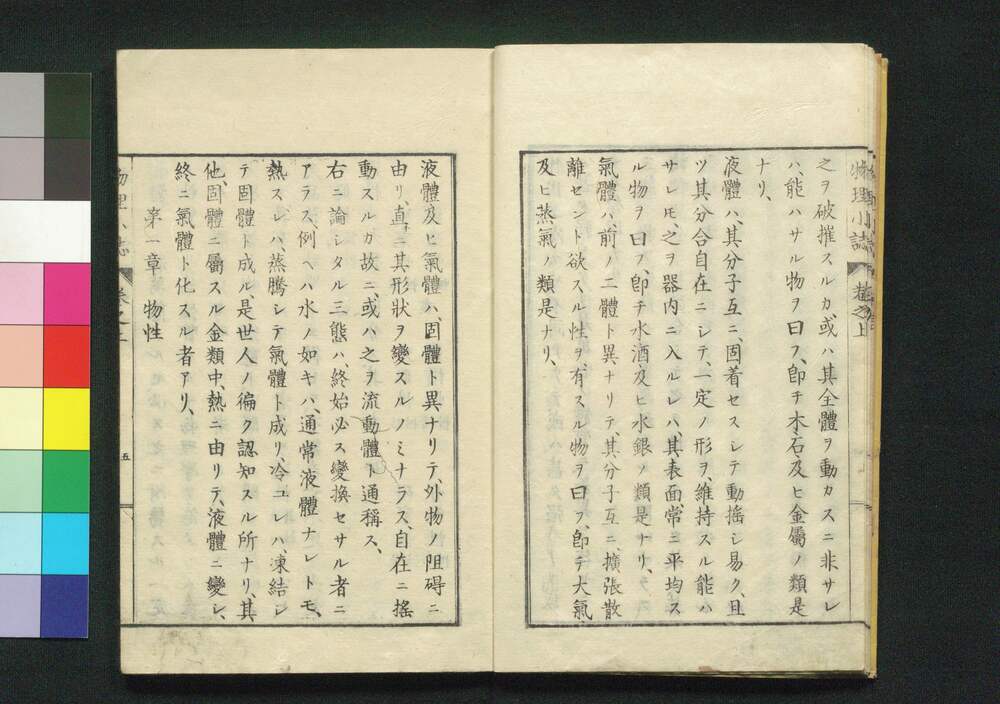 物理小誌 卷之上
之ヲ破摧スルカ或ハ其全體ヲ動カスニ非サレ
ハ、能ハサル物ヲ曰フ、卽チ木石及ヒ金屬ノ類是
ナリ、
液體ハ、其分子互ニ、固着セスシテ動搖シ易ク、且
ツ其分合自在ニシテ、一定ノ形ヲ、維持スル能ハ
サレ𪜈、之ヲ器内ニ入ルレハ、其表面常ニ平均ス
ル物ヲ曰フ、卽チ水酒、及ヒ水銀ノ類是ナリ、
氣體ハ、前ノ二體ト異ナリテ、其分子互ニ、擴張散
離セント欲スル性ヲ、有スル物ヲ曰フ、卽チ大氣
及ヒ蒸氣ノ類是ナリ、
液體及ヒ氣體ハ、固體ト異ナリテ、外物ノ阻碍ニ
由リ、直ニ其形狀ヲ變スルノミナラス、自在ニ搖
動スルカ故ニ、或ハ之ヲ流動體ト通稱ス、
右ニ論シタル三態ハ、終始必ス變換セサル者ニ
アラス、例ヘハ水ノ如キハ、通常液體ナレトモ、
熱スレハ、蒸騰シテ氣體ト成リ、冷ユレハ、凍結シ
テ固體ト成ル、是世人ノ徧ク認知スル所ナリ、其
他、固體ニ屬スル金類中、熱ニ由リテ、液體ニ變シ、
終ニ氣體ト化スル者アリ、
第一章 物性
五